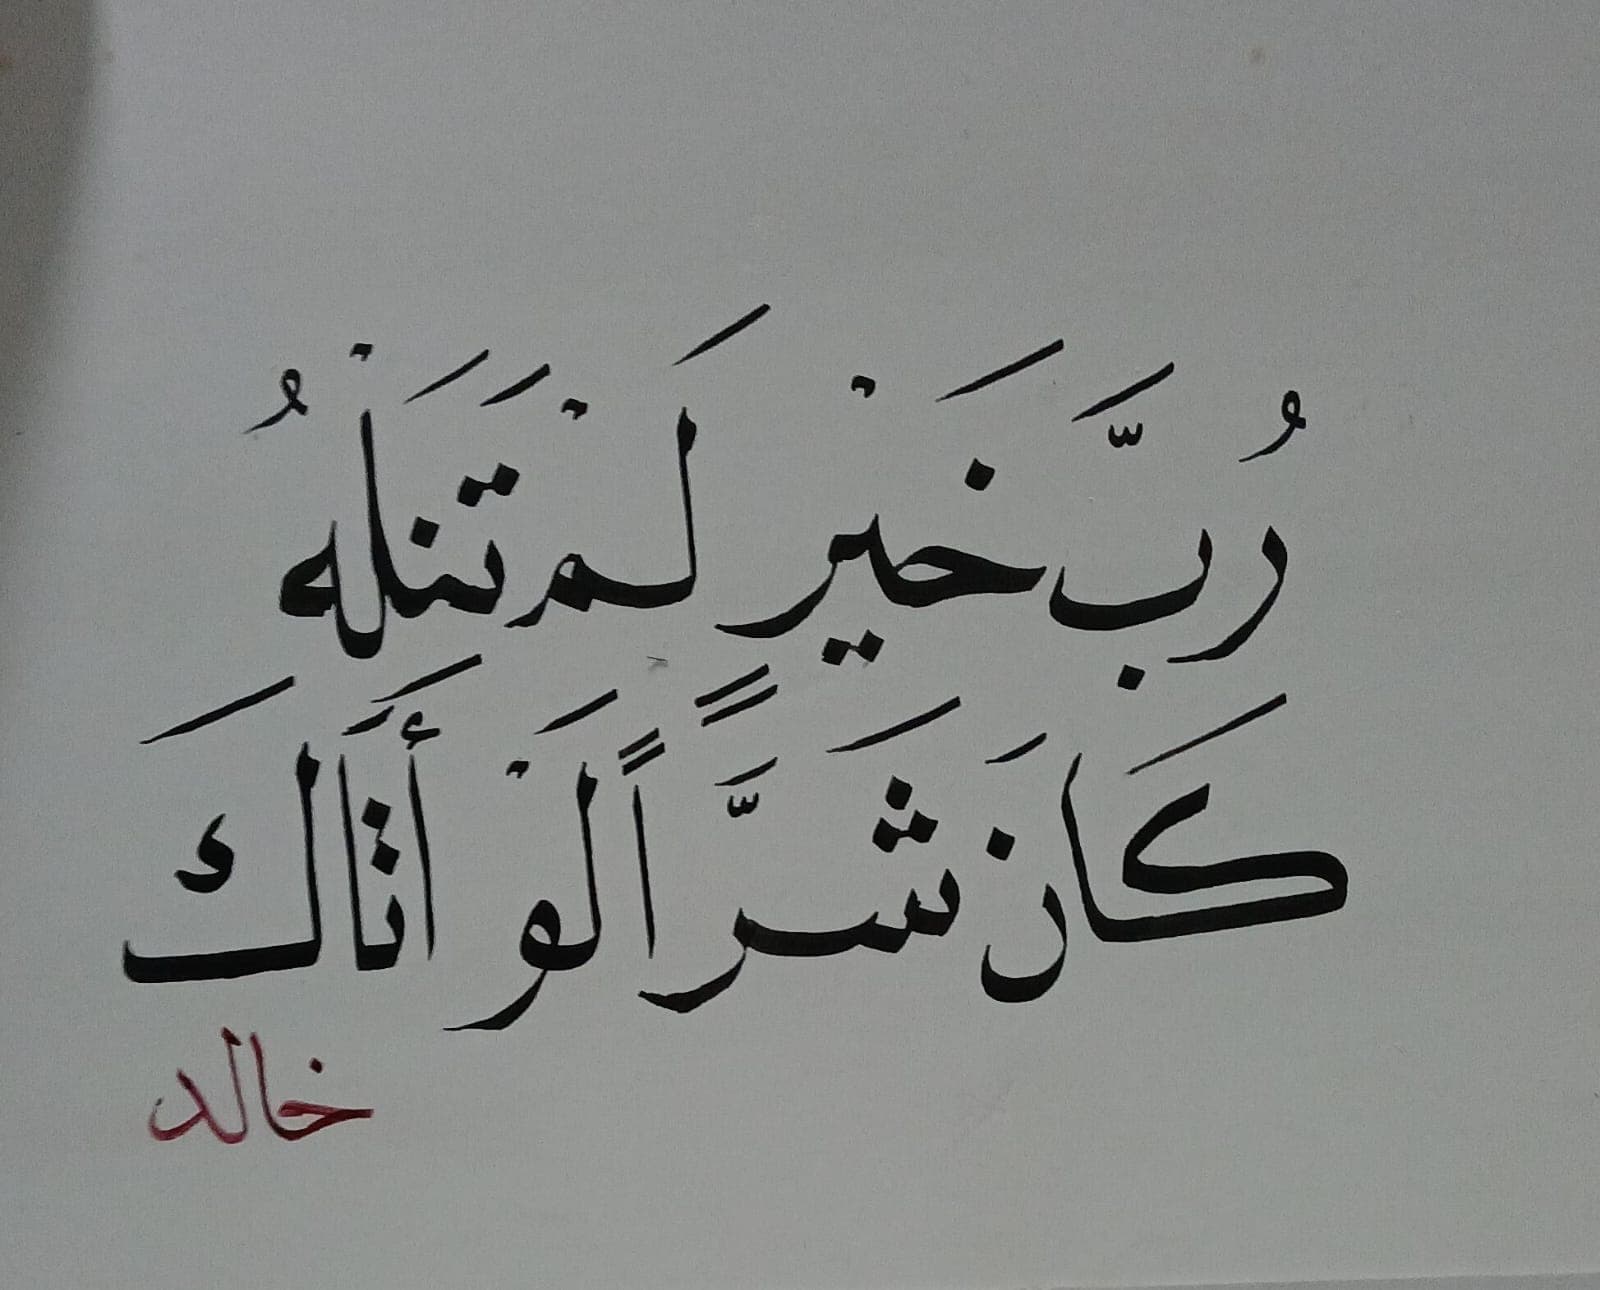 رُبَّ خَيْر لَمْ تَنَلْهُ
كَانَ شَرَّاً لَوْ أَتَاكَ
خالد